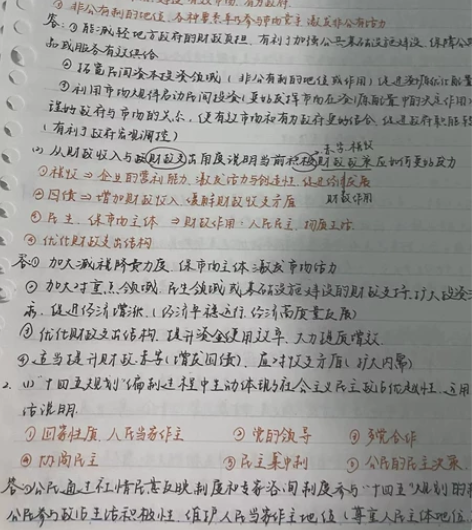 ② 非公有制的地位、各种要素平等参与市场竞争 激发非公有活力
答:① 能减轻地方政府的财政负担，有利于加强公共基础设施建设，保障公共
品或服务有效供给
② 拓宽民间资本投资领域（非公有制的地位或作用）促进资源优化配置
③ 利用市场规律启动民间投资（更好发挥市场在资源配置中的决定作用）
政府与市场的关系，使有效市场和有为政府更好结合，促进政府职能转
（有利于政府宏观调控）
(1) 从财政收入与财政支出角度说明当前积极财政政策应如何更好发力
① 税收 ⇒ 企业的营利能力，激发活力与创造性，促进经济发展
② 国债 ⇒ 增加财政收入 缓解财政收支矛盾 财政作用
③ 民生、保市场主体 ⇒ 财政作用：人民民主，物质生活
④ 优化财政支出结构
答:① 加大减税降费力度，保市场主体 激发市场活力
② 加大对重点领域，民生领域或基础设施建设的财政支持，扩大投资
求，促进经济增长，（经济平稳运行，经济高质量发展）
③ 优化财政支出结构，提升资金使用效率，大力提质增效
④ 适当提升财政赤字（增发国债），应对收支矛盾（扩大内需）
2. (1) "十四五规划"编制过程中主动体现了社会主义民主政治优越性，运用
活说明.
① 国家性质，人民当家作主 ② 党的领导 ③ 多党合作
④ 协商民主 ⑤ 民主集中制 ⑥ 公民的民主决策
答:① 公民通过社情民意反映制度和专家咨询制度参与"十四五"规划的
公民参与政治生活积极性，维护人民当家作主地位（尊重人民主体地位